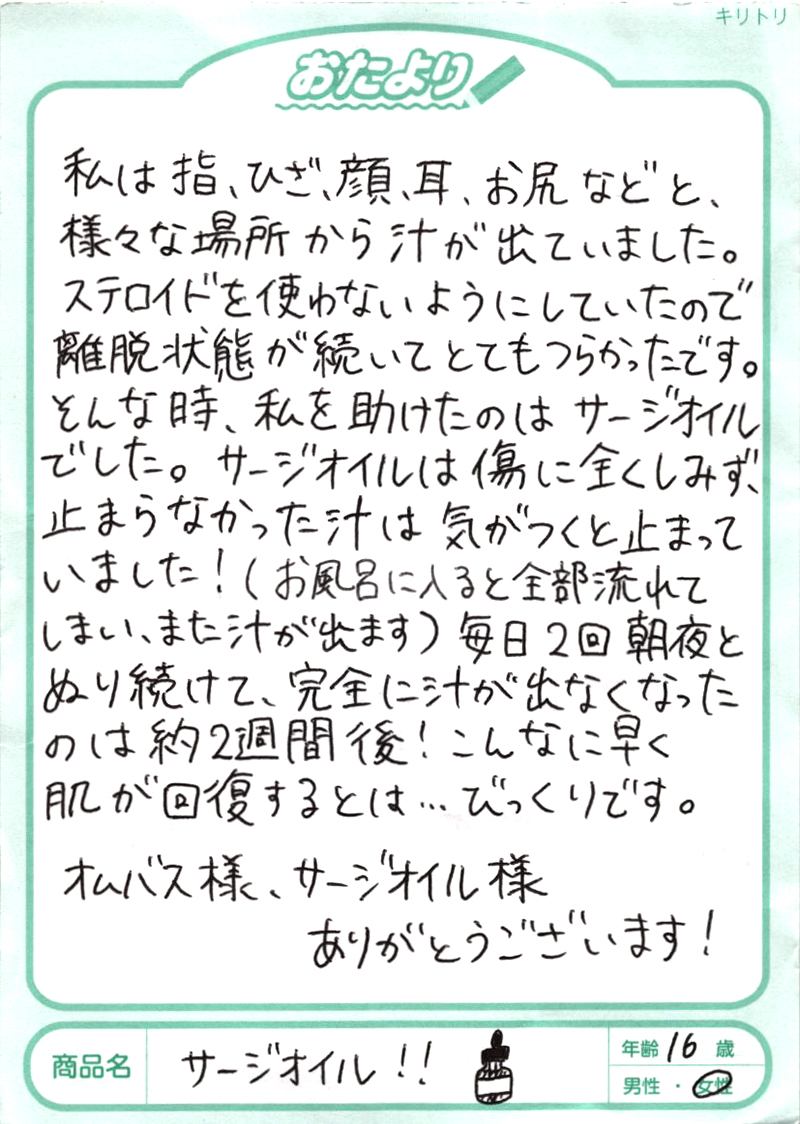 キリトリ
おたより
私は指、ひざ、顔、耳、お尻などと、
様々な場所から汁が出ていました。
ステロイドを使わないようにしていたので
離脱状態が続いてとてもつらかったです。
そんな時、私を助けたのはサージオイル
でした。サージオイルは傷に全くしみず、
止まらなかった汁は気がつくと止まって
いました！(お風呂に入ると全部流れて
しまい、また汁が出ます)毎日2回朝夜と
ぬり続けて、完全に汁が出なくなった
のは約2週間後！こんなに早く
肌が回復するとは…びっくりです。
オムバス様、サージオイル様
ありがとうございます！
商品名 サージオイル！！
年齢 16 歳
男性・女性